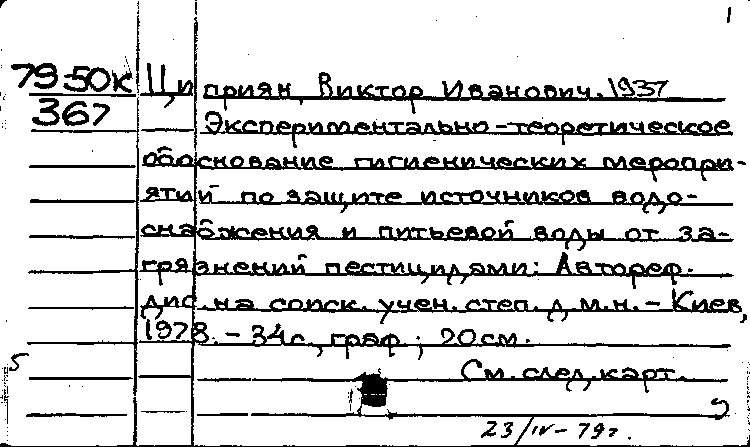 1
79-50к Циприян, Виктор Иванович. 1937
367 Экспериментально-теоретическое
обоснование гигиенических меропри-
ятий по защите источников водо-
снабжения и питьевой воды от за-
грязнений пестицидами: Автореф.
дис. на соиск. учен. степ. д.м.н. - Киев,
1978. - 34 с., граф; 20 см.
5
См. след. карт.
23/IV-79г.